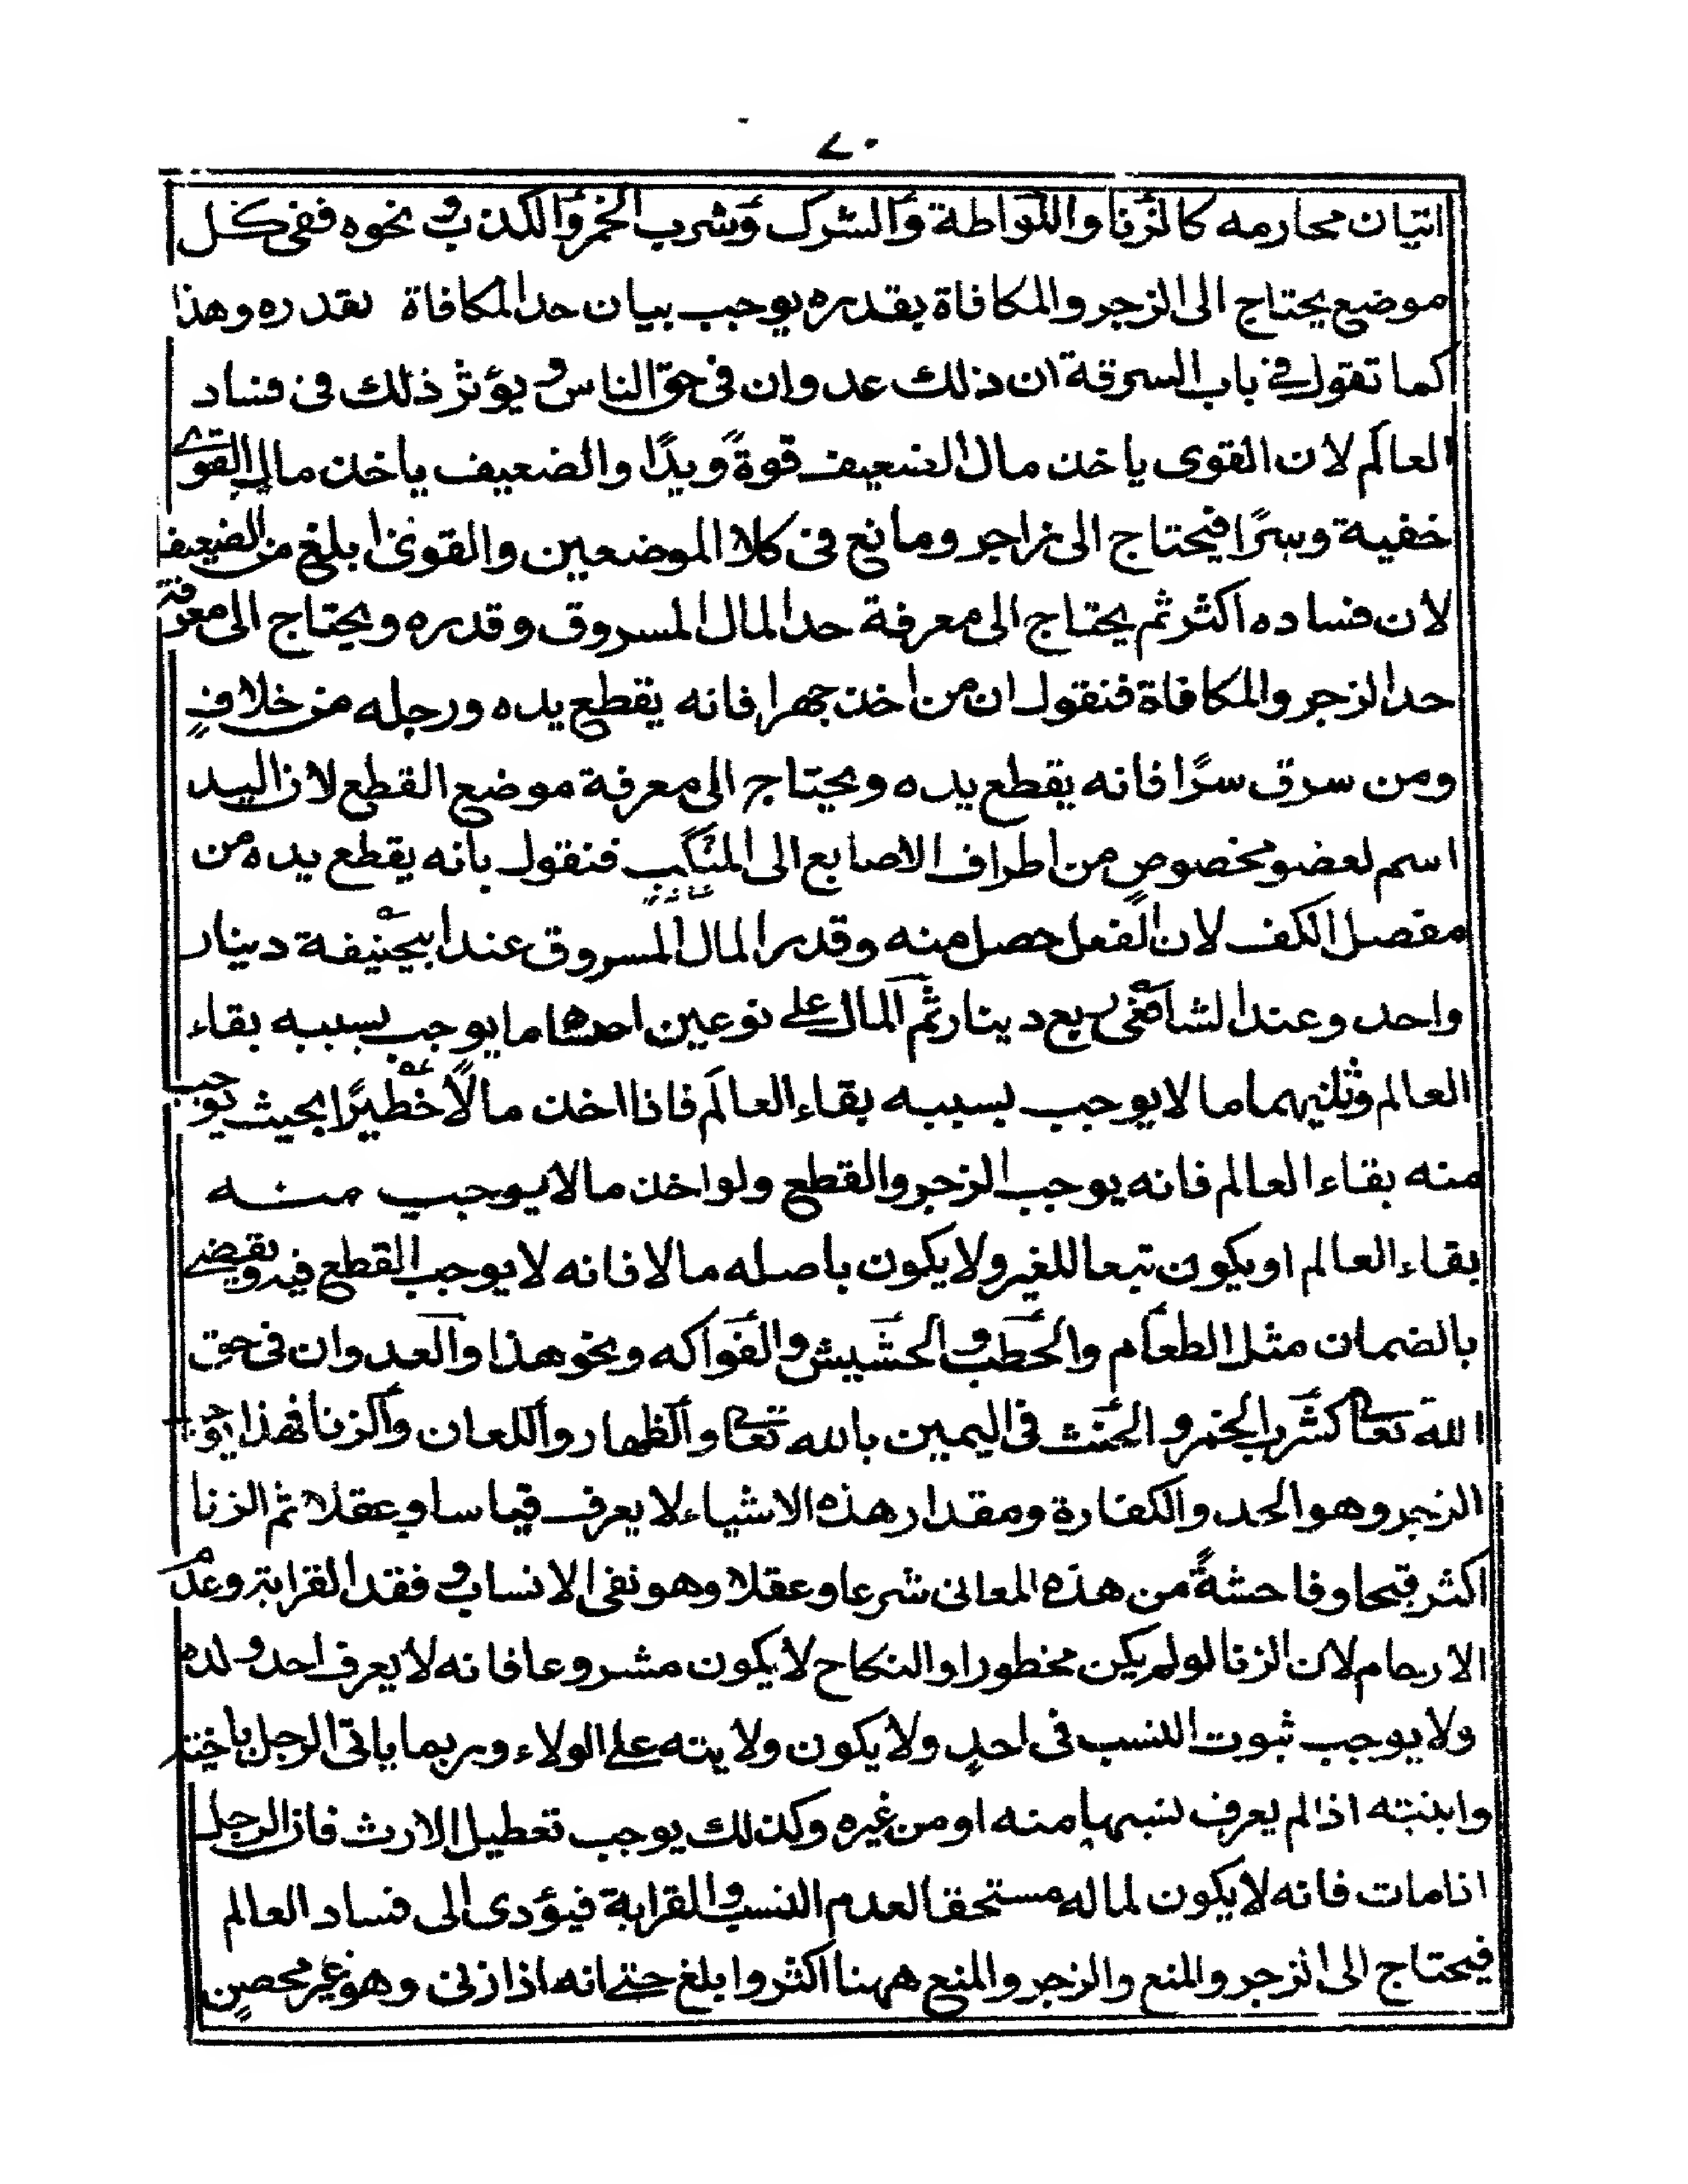 ٧٠
اتيان محارمه كالزنا واللواطة والشرك وشرب الخمر والكذب ونحوه ففى كل
موضع يحتاج الى الزجر والمكافاة بقدره يوجب بيان حد المكافاة بقدره وهذا
كما تقول فى باب السرقة ان ذلك عدوان فى حق الناس ويؤثر ذلك فى فساد
العالم لان القوى ياخذ مال الضعيف قوةً ويدًا والضعيف ياخذ مال القوى
خفية وسرًا فيحتاج الى زاجر ومانع فى كلا الموضعين والقوى ابلغ من الضعيف
لان فساده اكثر ثم يحتاج الى معرفة حد المال المسروق وقدره ويحتاج الى معرفة
حد الزجر والمكافاة فنقول ان من اخذ جهرا فانه يقطع يده ورجله من خلافٍ
ومن سرق سرًا فانه يقطع يده ويحتاج الى معرفة موضع القطع لان اليد
اسم لعضو مخصوص من اطراف الاصابع الى المنكب فنقول بانه يقطع يده من
مفصل الكف لان الفعل حصل منه وقدر المال المسروق عند ابيحنيفة دينار
واحد وعند الشافعى ربع دينار ثم المال على نوعين احدهما ما يوجب بسببه بقاء
العالم وثانيهما ما لا يوجب بسببه بقاء العالم فاذا اخذ مالًا خطيرًا بحيث يوجب
منه بقاء العالم فانه يوجب الزجر والقطع ولو اخذ ما لا يوجب منه
بقاء العالم او يكون تبعا للغير ولا يكون باصله مالا فانه لا يوجب القطع فيه ويقضى
بالضمان مثل الطعام والحطب والحشيش والفواكه ونحو هذا والعدوان فى حق
الله تعالى كشرب الخمر والحنث فى اليمين بالله تعالى والظهار واللعان والزنا فهذا يوجب
الزجر وهو الحد والكفارة ومقدار هذه الاشياء لا يعرف قياسا وعقلا ثم الزنا
اكثر قبحا وفاحشةً من هذه المعانى شرعا وعقلا وهو نفى الانساب وفقد القرابة وعدم
الارحام لان الزنا لو لم يكن محظورا والنكاح لا يكون مشروعا فانه لا يعرف احد ولده
ولا يوجب ثبوت النسب فى احدٍ ولا يكون ولايته على الولاء وربما ياتى الرجل باخته
وابنته اذا لم يعرف نسبها منه او من غيره وكذلك يوجب تعطيل الارث فان الرجل
اذا مات فانه لا يكون لماله مستحقا لعدم النسب والقرابة فيؤدى الى فساد العالم
فيحتاج الى الزجر والمنع والزجر والمنع ههنا اكثر وابلغ حتى انه اذا زنى وهو غير محصنٍ